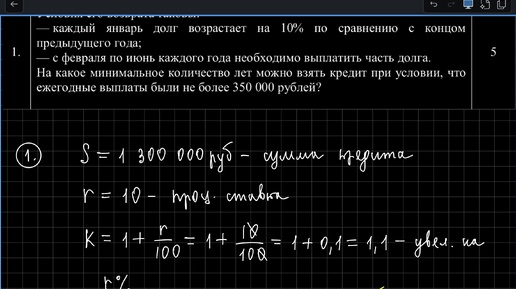 — каждый январь долг возрастает на 10% по сравнению с концом
предыдущего года;
1.
— с февраля по июнь каждого года необходимо выплатить часть долга.
5
На какое минимальное количество лет можно взять кредит при условии, что
ежегодные выплаты были не более 350 000 рублей?
1. S = 1 300 000 руб – сумма кредита
r = 10 – проц. ставка
K = 1 + r/100 = 1 + 10/100 = 1 + 0,1 = 1,1 – увел. на
r%